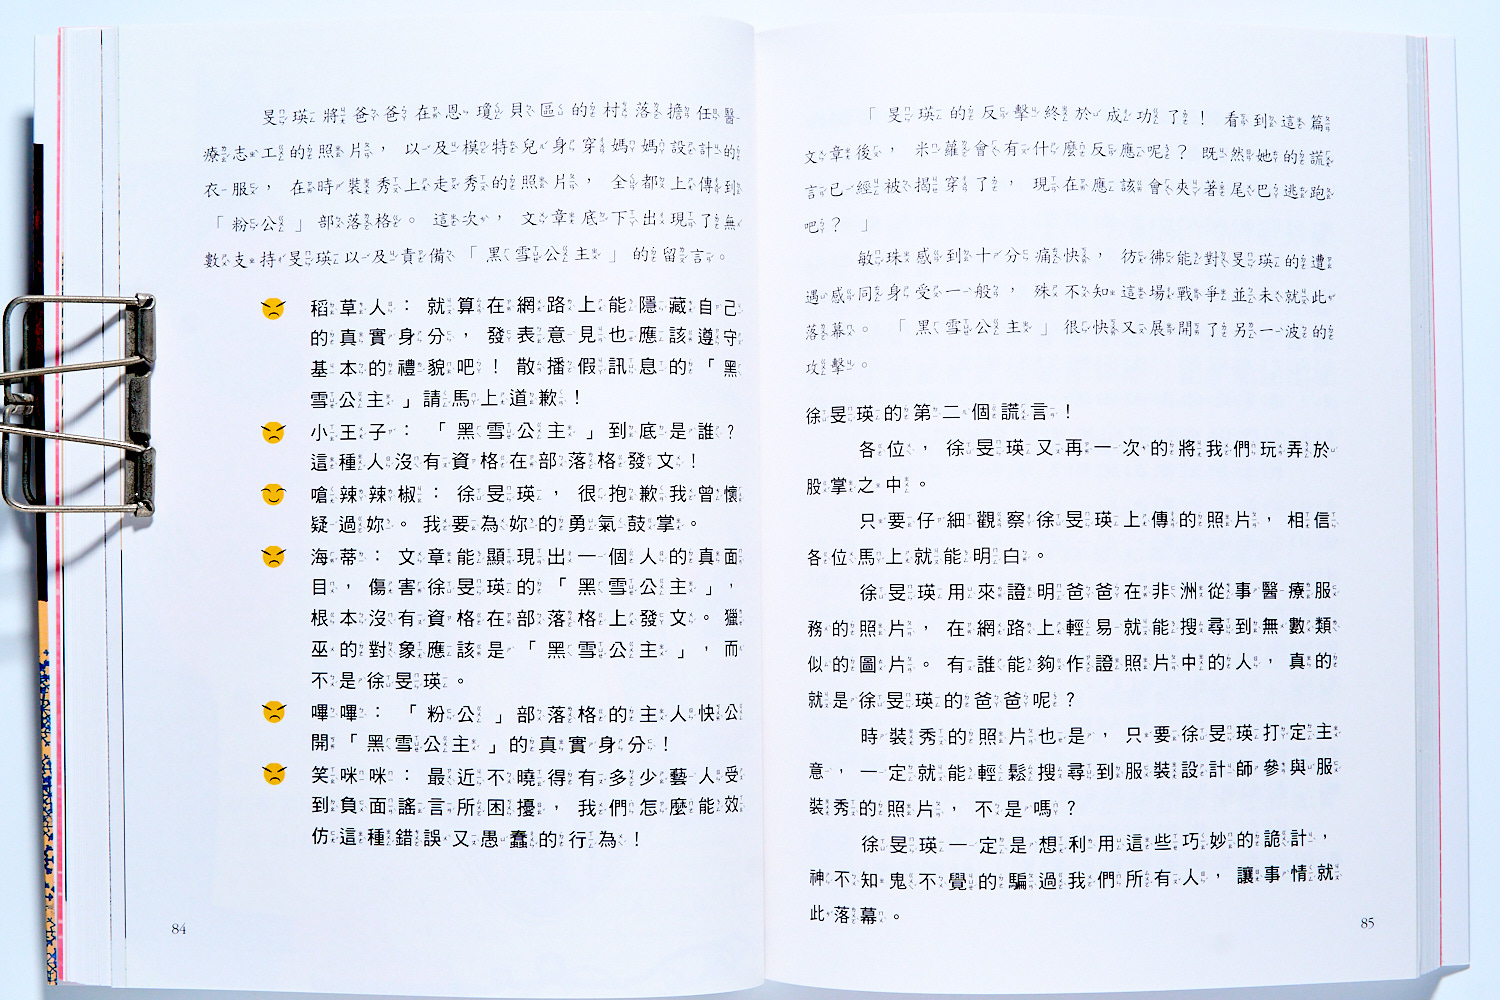 旻瑛將爸爸在恩瓊貝區的村落擔任醫
療志工的照片，以及模特兒身穿媽媽設計的
衣服，在時裝秀上走秀的照片，全都上傳到
「粉公」部落格。這次，文章底下出現了無
數支持旻瑛以及責備「黑雪公主」的留言。
稻草人：就算在網路上能隱藏自己
的真實身分，發表意見也應該遵守
基本的禮貌吧！散播假訊息的「黑
雪公主」請馬上道歉！
小王子：「黑雪公主」到底是誰？
這種人沒有資格在部落格發文！
嗆辣辣椒：徐旻瑛，很抱歉我曾懷
疑過妳。我要為妳的勇氣鼓掌。
海蒂：文章能顯現出一個人的真面
目，傷害徐旻瑛的「黑雪公主」，
根本沒有資格在部落格上發文。獵
巫的對象應該是「黑雪公主」，而
不是徐旻瑛。
嗶嗶：「粉公」部落格的主人快公
開「黑雪公主」的真實身分！
笑咪咪：最近不曉得有多少藝人受
到負面謠言所困擾，我們怎麼能效
仿這種錯誤又愚蠢的行為！
84
「旻瑛的反擊終於成功了！看到這篇
文章後，米蘿會有什麼反應呢？既然她的謊
言已經被揭穿了，現在應該會夾著尾巴逃跑
吧？」
敏珠感到十分痛快，彷彿能對旻瑛的遭
遇感同身受一般，殊不知這場戰爭並未就此
落幕。「黑雪公主」很快又展開了另一波的
攻擊。
徐旻瑛的第二個謊言！
各位，徐旻瑛又再一次的將我們玩弄於
股掌之中。
只要仔細觀察徐旻瑛上傳的照片，相信
各位馬上就能明白。
徐旻瑛用來證明爸爸在非洲從事醫療服
務的照片，在網路上輕易就能搜尋到無數類
似的圖片。有誰能夠作證照片中的人，真的
就是徐旻瑛的爸爸呢？
時裝秀的照片也是，只要徐旻瑛打定主
意，一定就能輕鬆搜尋到服裝設計師參與服
裝秀的照片，不是嗎？
徐旻瑛一定是想利用這些巧妙的詭計，
神不知鬼不覺的騙過我們所有人，讓事情就
此落幕。
85